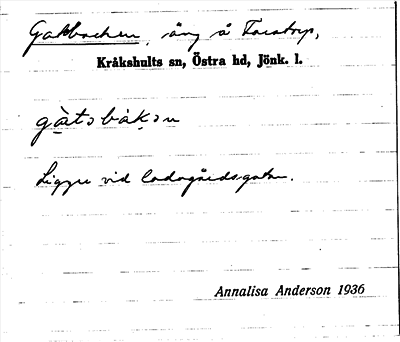 Gatbacken, äng å Farstorp,
Kråkshults sn, Östra hd, Jönk. l.
gàtsbàkən
Ligger vid ladugårdsgatan.
Annalisa Anderson 1936